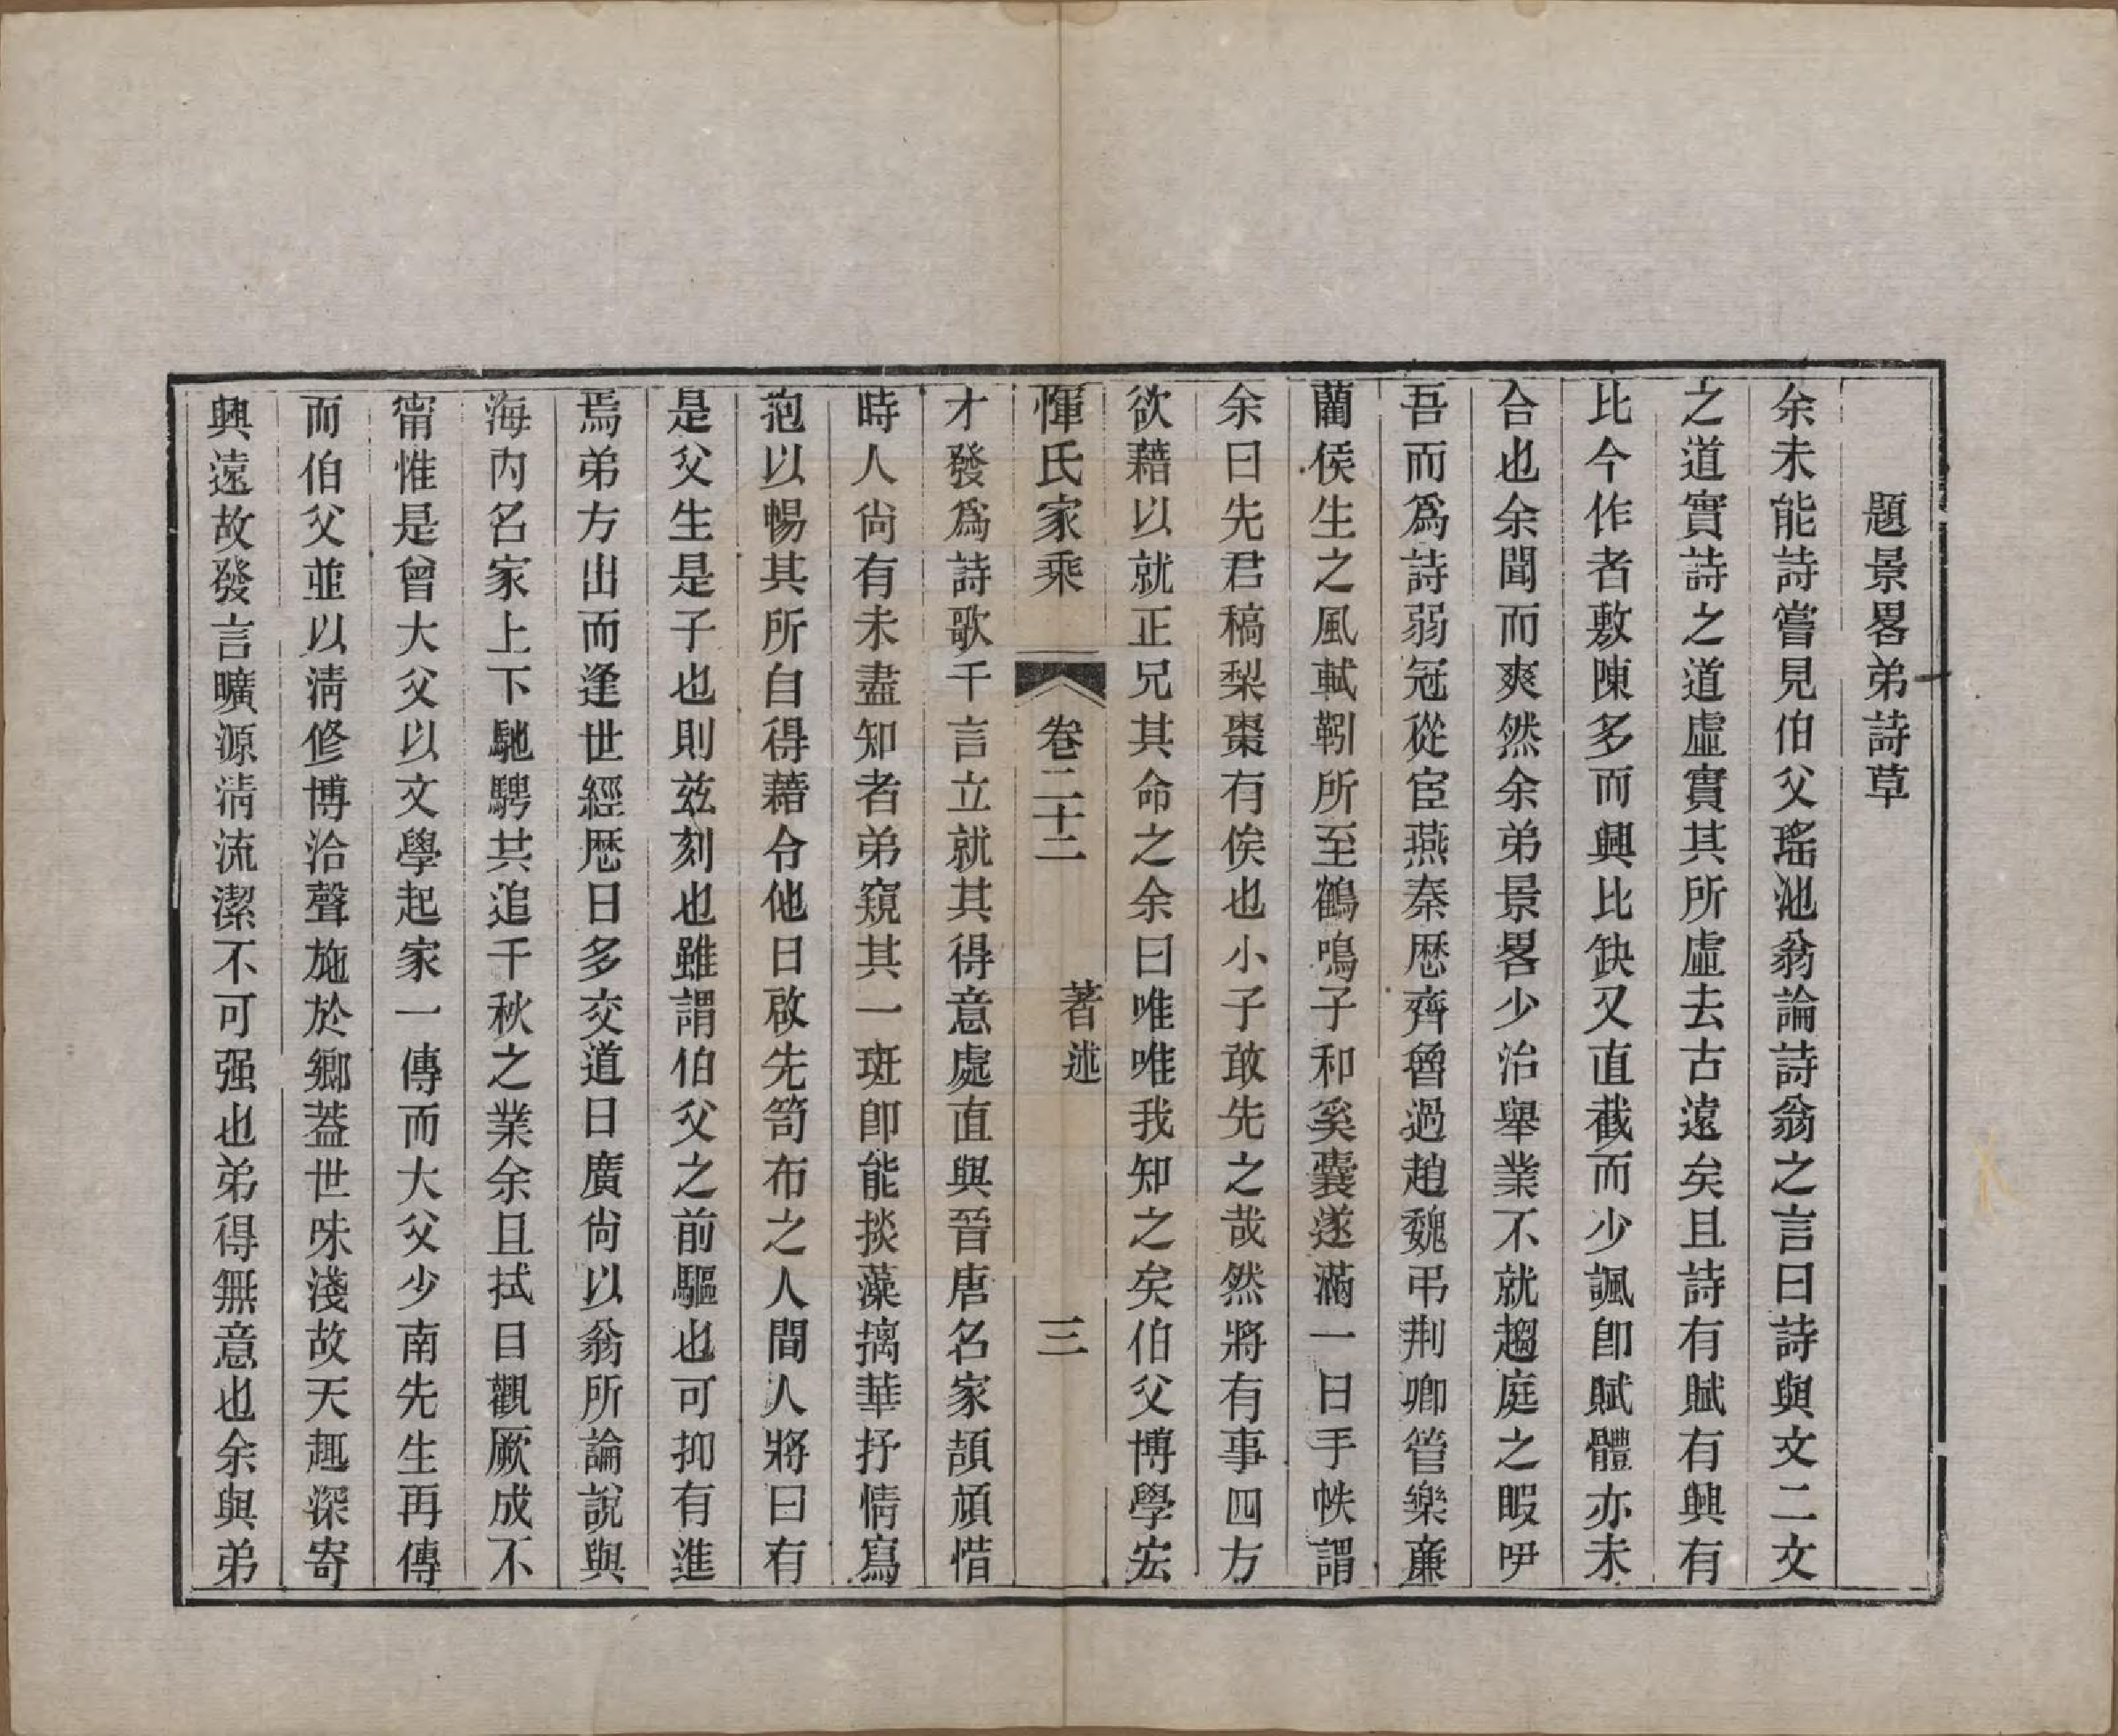 題景畧弟詩草
余未能詩嘗見伯父瑤池翁論詩翁之言曰詩與文二文
之道實詩之道虛實其所虛去古遠矣且詩有賦有興有
比今作者敷陳多而興比缺又直截而少諷卽賦體亦未
合也余聞而爽然余弟景畧少治舉業不就趨庭之暇吚
吾而爲詩弱冠從宦燕秦歷齊魯過趙魏弔荆卿管樂廉
藺侯生之風軾靷所至鶴鳴子和奚囊遂滿一日手帙謂
余曰先君稿梨棗有俟也小子敢先之哉然將有事四方
欲藉以就正兄其命之余曰唯唯我知之矣伯父博學宏
惲氏家乘
卷二十二
著述
三
才發爲詩歌千言立就其得意處直與晉唐名家頡頏惜
時人尙有未盡知者弟窺其一斑卽能掞藻摛華抒情寫
抱以暢其所自得藉令他日啟先笥布之人間人將曰有
是父生是子也則兹刻也雖謂伯父之前驅也可抑有進
焉弟方出而逢世經歷日多交道日廣尙以翁所論說與
海内名家上下馳騁共追千秋之業余且拭目觀厥成不
甯惟是曾大父以文學起家一傳而大父少南先生再傳
而伯父並以淸修博洽聲施於鄉葢世味淺故天趣深寄
興遠故發言曠源淸流潔不可强也弟得無意也余與弟